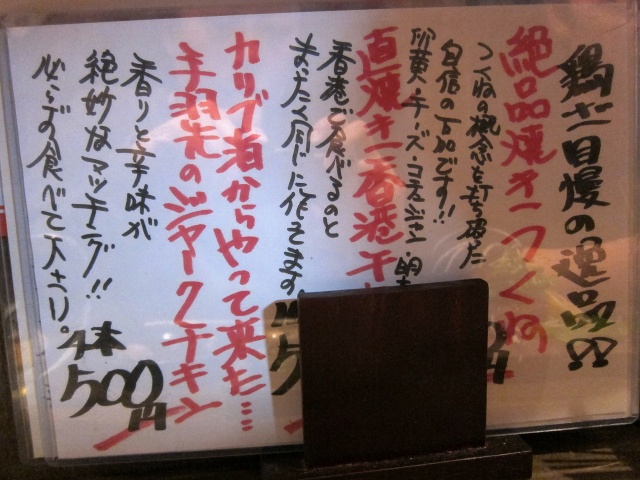 鶏ざ自慢の逸品
絶品焼きつくね
つくねの概念を打ち破った
自信の一品です!!
卵黄・チーズ・コラーゲン・明
円
直焼き香港手
香港で食べるのと
まったく同じに作てます
5
カリブ海からやって来た…
手羽先のジャークチキン
香りと辛味が
絶妙なマッチング!!
必らずの食べて下さい。
4本
500円